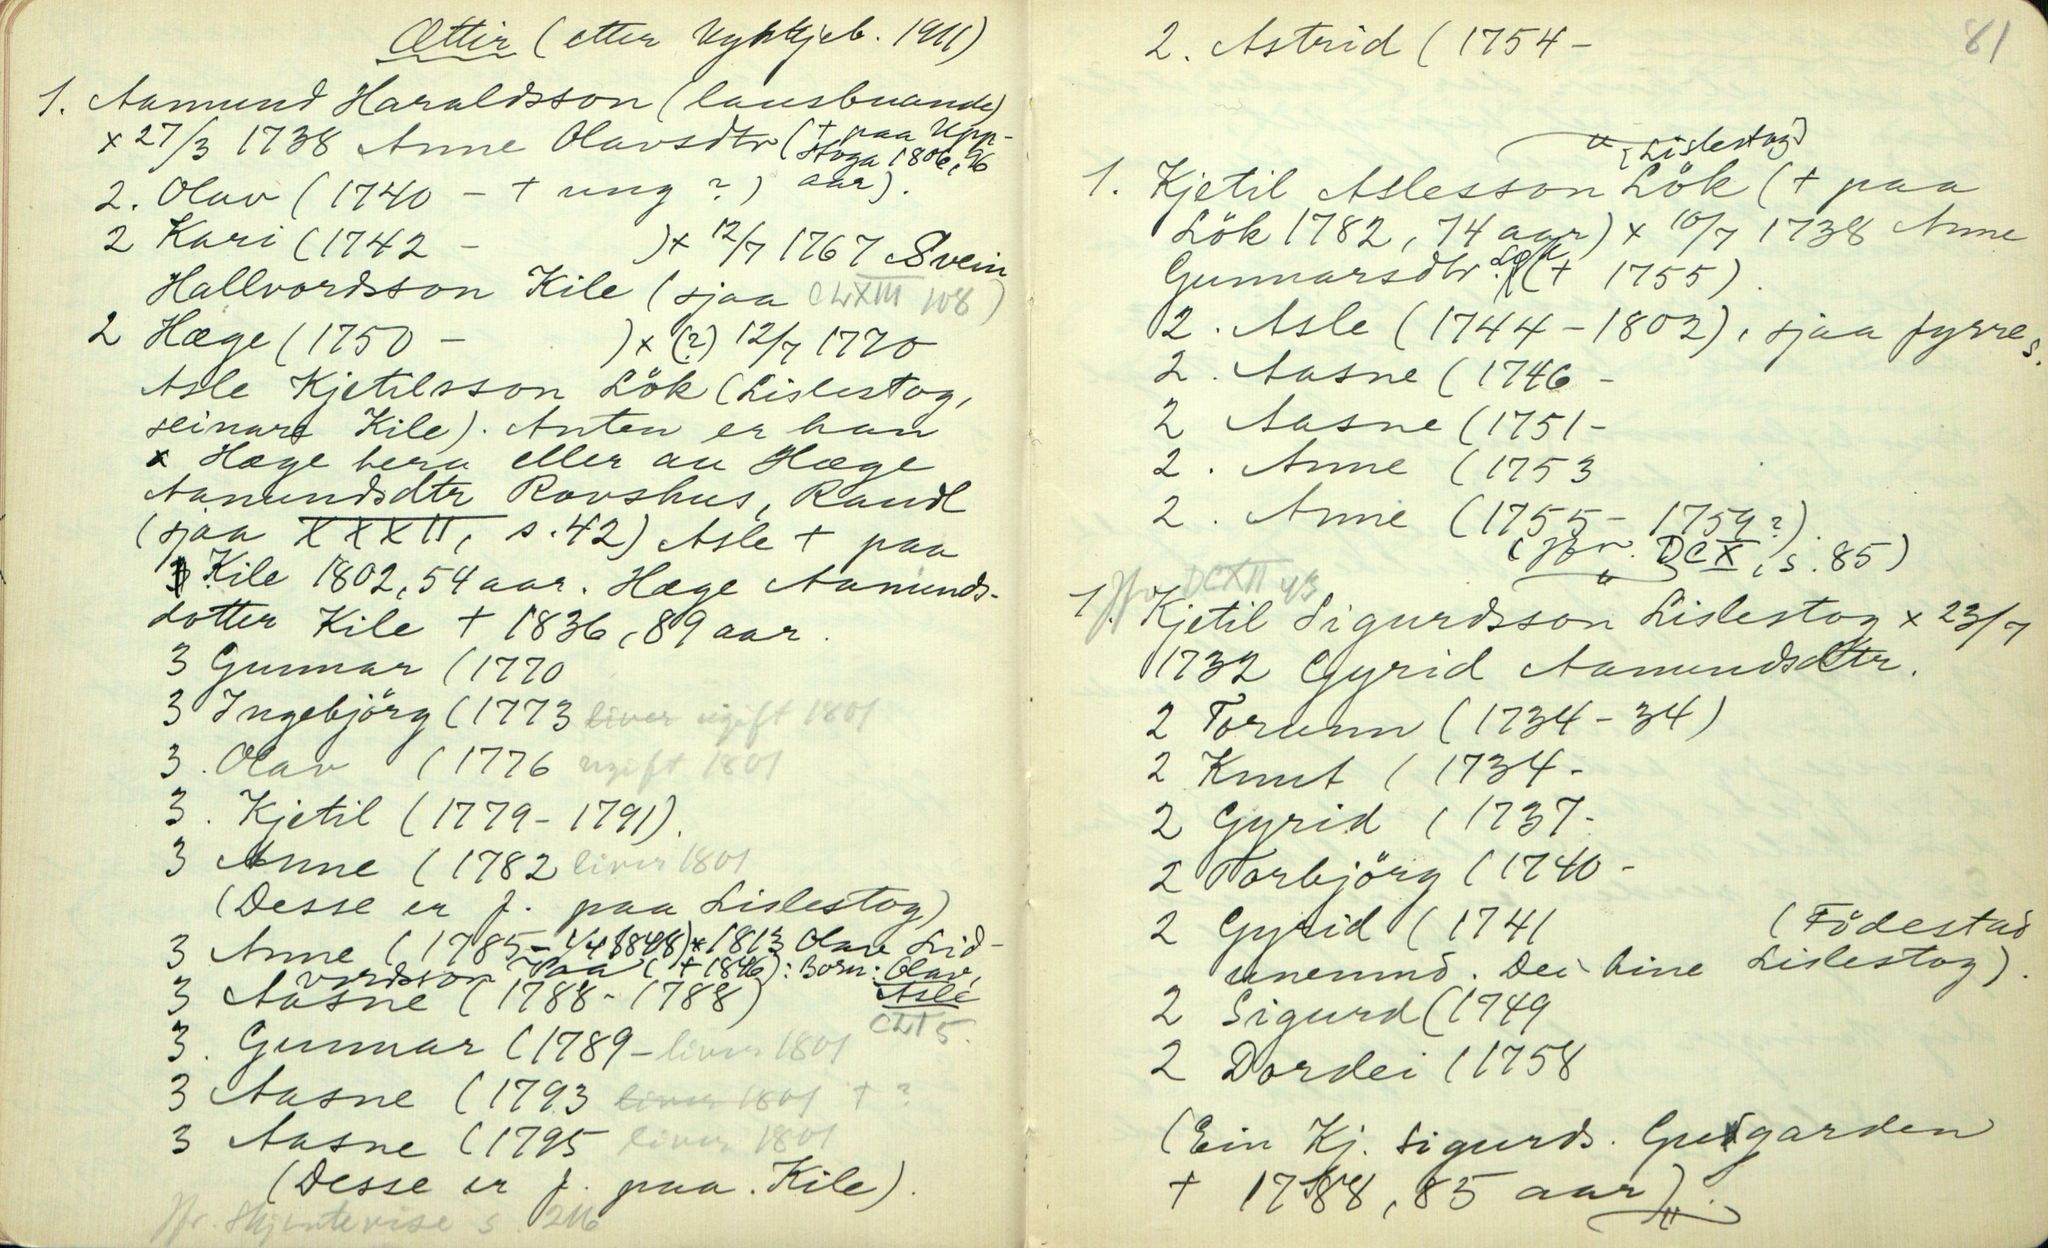 Ættir (etter Kyrkjeb. 1911)
1. Aamund Haraldsson (lausbuande)
x 27/3 1738 Anne Olavsdtr († paa Upp-
stoga 1806, 96
aar).
2. Olav (1740 - † ung ?)
2 Kari (1742 - )x 12/7 1767 Svein
Hallvordsson Kile (sjaa CLXIII 108)
2 Hæge (1750 - )x (?) 12/7 1770
Asle Kjetilsson Lök (Lislestog,
seinare Kile). Anten er han
x Hæge hera eller au Hæge
Aamundsdtr Rovshus, Raudl
(sjaa XXXII, s. 42) Asle † paa
Kile 1802, 54 aar. Hæge Aamunds-
dotter Kile † 1836, 89 aar.
3 Gunnar (1770
3 Ingebjörg (1773 liver ugift 1801
3. Olav (1776 ugift 1801
3. Kjetil (1779 - 1791).
3 Anne (1782 liver 1801
(Desse er f. paa Lislestog)
3 Anne (1785 - 1/4 1848) x 1813 Olav Lid-
vordsson (†1846): Born: Olav,
Asle
CLI 5.
3 Aasne (1788 - 1788)
3. Gunnar (1789 - liver 1801
3 Aasne (1793 liver 1801 † ?
3 Aasne (1795 liver 1801
(Desse er f. paa Kile).
Jfr. Skjintevise s. 216
81
2. Astrid (1754 -
"
(Lislestog)
1. Kjetil Aslesson Lök († paa
Lök 1782, 74 aar) x 10/7 1738 Anne
Gunnarsdtr Lök († 1755).
2. Asle (1744 - 1802), sjaa fyrre s.
2. Aasne (1746 -
2 Aasne (1751 -
2. Anne (1753
2. Anne (1755 - 1759?)
(Jfr. DCX, s. 85)
"
Jfr. DCXII 43
1. Kjetil Sigurdsson Lislestog x 23/7
1732 Gyrid Aamundsdtr.
2 Torunn (1734 - 34)
2 Knut (1734 -
2 Gyrid (1737 -
2 Torbjörg (1740 -
2 Gyrid (1741 (Födestad
unemnd. Dei hine Lislestog).
2 Sigurd (1749
2 Dordei (1758
(Ein Kj. Sigurds. Gutgarden
† 1788, 85 aar).
"